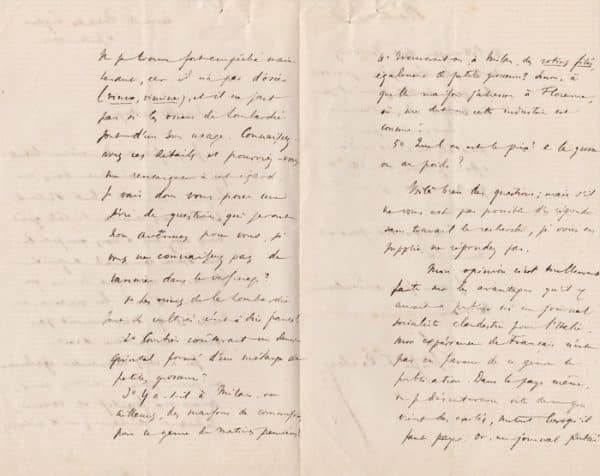 se trouve fort empêché main-
tenant, car il n'a pas d'osier
(vinco, vimine), et il ne sait
pas si les osiers de Lombardie
sont d'un bon usage. Connaissez-
vous ces détails et pourriez-vous
me renseigner à cet égard
Je vais donc vous poser une
série de questions, qui seront
non avenues pour vous, si
vous ne connaissez pas de
vannier dans le voisinage?
1° Les osiers de la Lombardie
sont-ils cultivés, c'est à dire
2° Combien coûteraient un demi
quintal, formé d'un mélange de
petites grosseurs?
3° Y a-t-il à Milan, ou
ailleurs, des maisons de
pour ce genre de matières premières?
4° Trouverait-on, à Milan, des rotins filés,
également de petite grosseur? Sinon, à
quelle maison s'adresser à Florence,
où, me dit-on, cette industrie est
connue?
5° Quel en est le prix? à la grosse
ou au poids?
Voilà bien des questions; mais s'il
ne vous est pas possible d'y répondre
sans travail de recherche, je vous en
supplie ne répondez pas.
Mon opinion n'est nullement
faite sur les avantages qu'il y
aurait à publier ici un journal
socialiste clandestin pour l'Italie.
Mon expérience de Français n'est
pas en faveur de ce genre de
publication. Dans le pays même,
on
vient les cartes, surtout lorsqu'il
faut payer. Or, un journal